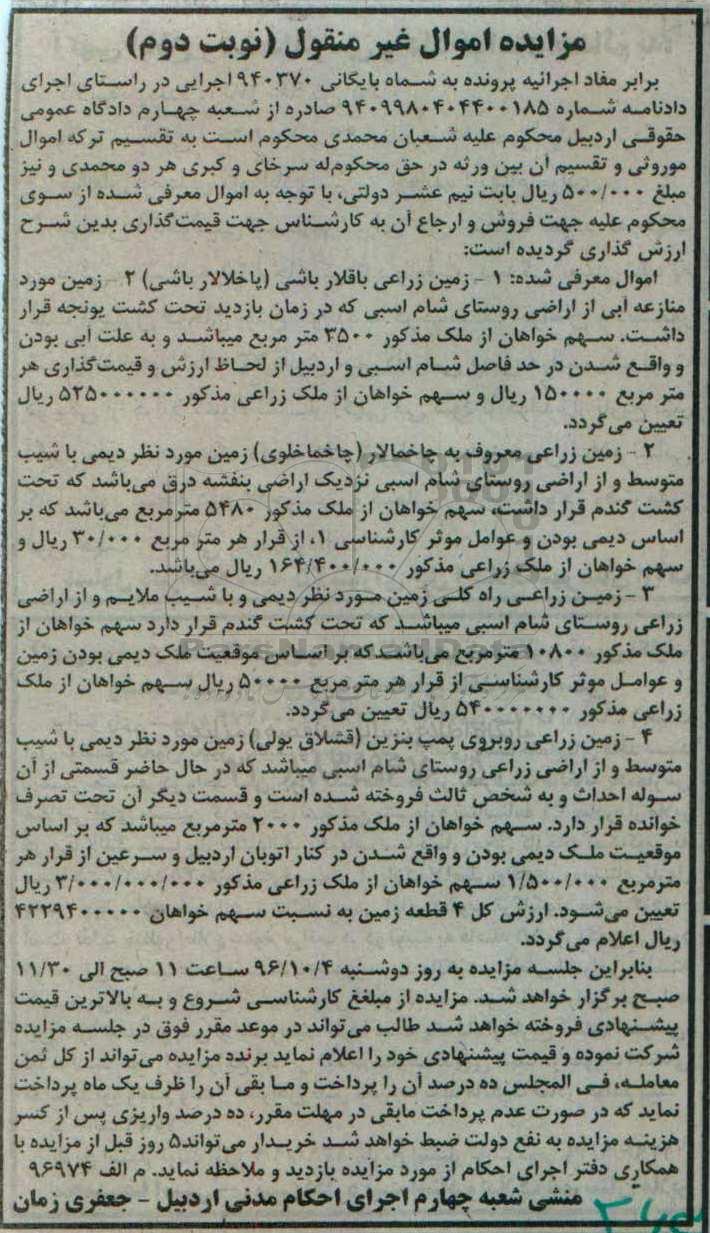 مزایده اموال غیر منقول (نوبت دوم)
برابر مفاد اجرائیه پرونده به شماه بایگانی ۹۴۰۳۷۰ اجرایی در راستای اجرای
دادنامه شماره ۹۴۰۹۹۸۰۴۰۴۴۰۰۱۸۵ صادره از شعبه چهارم دادگاه عمومی
حقوقی اردبیل محکوم علیه شعبان محمدی محکوم است به تقسیم ترکه اموال
موروثی و تقسیم آن بین ورثه در حق محکوم‌له سرخای و کبری هر دو محمدی و نیز
مبلغ ۵۰۰/۰۰۰ ریال بابت نیم عشر دولتی، با توجه به اموال معرفی شده از سوی
محکوم علیه جهت فروش و ارجاع آن به کارشناس جهت قیمت‌گذاری بدین شرح
ارزش گذاری گردیده است:
اموال معرفی شده: ۱ - زمین زراعی باقلار باشی (پاخلالار باشی) ۲ - زمین مورد
منازعه آبی از اراضی روستای شام اسبی که در زمان بازدید تحت کشت یونجه قرار
داشت. سهم خواهان از ملک مذکور ۳۵۰۰ متر مربع میباشد و به علت آبی بودن
و واقع شدن در حد فاصل شام اسبی و اردبیل از لحاظ ارزش و قیمت‌گذاری هر
متر مربع ۱۵۰۰۰۰ ریال و سهم خواهان از ملک زراعی مذکور ۵۲۵۰۰۰۰۰۰ ریال
تعیین می‌گردد.
۲ - زمین زراعی معروف به چاخمالار (چاخماخلوی) زمین مورد نظر دیمی با شیب
متوسط و از اراضی روستای شام اسبی نزدیک اراضی بنفشه درق می‌باشد که تحت
کشت گندم قرار داشت، سهم خواهان از ملک مذکور ۵۴۸۰ مترمربع می‌باشد که بر
اساس دیمی بودن و عوامل موثر کارشناسی ۱، از قرار هر متر مربع ۳۰/۰۰۰ ریال و
سهم خواهان از ملک زراعی مذکور ۱۶۴/۴۰۰/۰۰۰ ریال می‌باشد.
۳ - زمین زراعی راه کلی زمین مورد نظر دیمی و با شیب ملایم و از اراضی
زراعی روستای شام اسبی میباشد که تحت کشت گندم قرار دارد سهم خواهان از
ملک مذکور ۱۰۸۰۰ مترمربع می‌باشد که بر اساس موقعیت ملک دیمی بودن زمین
و عوامل موثر کارشناسی از قرار هر متر مربع ۵۰۰۰۰ ریال سهم خواهان از ملک
زراعی مذکور ۵۴۰۰۰۰۰۰۰ ریال تعیین می‌گردد.
۴ - زمین زراعی روبروی پمپ بنزین (قشلاق یولی) زمین مورد نظر دیمی با شیب
متوسط و از اراضی زراعی روستای شام اسبی میباشد که در حال حاضر قسمتی از آن
سوله احداث و به شخص ثالث فروخته شده است و قسمت دیگر آن تحت تصرف
خوانده قرار دارد. سهم خواهان از ملک مذکور ۲۰۰۰ مترمربع میباشد که بر اساس
موقعیت ملک دیمی بودن و واقع شدن در کنار اتوبان اردبیل و سرعین از قرار هر
مترمربع ۱/۵۰۰/۰۰۰ سهم خواهان از ملک زراعی مذکور ۳/۰۰۰/۰۰۰/۰۰۰ ریال
تعیین می‌شود. ارزش کل ۴ قطعه زمین به نسبت سهم خواهان ۴۲۲۹۴۰۰۰۰۰
ریال اعلام می‌گردد.
بنابراین جلسه مزایده به روز دوشنبه ۹۶/۱۰/۴ ساعت ۱۱ صبح الی ۱۱/۳۰
صبح برگزار خواهد شد. مزایده از مبلغغ کارشناسی شروع و به بالاترین قیمت
پیشنهادی فروخته خواهد شد طالب می‌تواند در موعد مقرر فوق در جلسه مزایده
شرکت نموده و قیمت پیشنهادی خود را اعلام نماید برنده مزایده می‌تواند از کل ثمن
معامله، فی المجلس ده درصد آن را پرداخت و ما بقی آن را ظرف یک ماه پرداخت
نماید که در صورت عدم پرداخت مابقی در مهلت مقرر، ده درصد واریزی پس از کسر
هزینه مزایده به نفع دولت ضبط خواهد شد خریدار می‌تواند ۵ روز قبل از مزایده با
همکاری دفتر اجرای احکام از مورد مزایده بازدید و ملاحظه نماید. م الف ۹۶۹۷۴
منشی شعبه چهارم اجرای احکام مدنی اردبیل - جعفری زمان